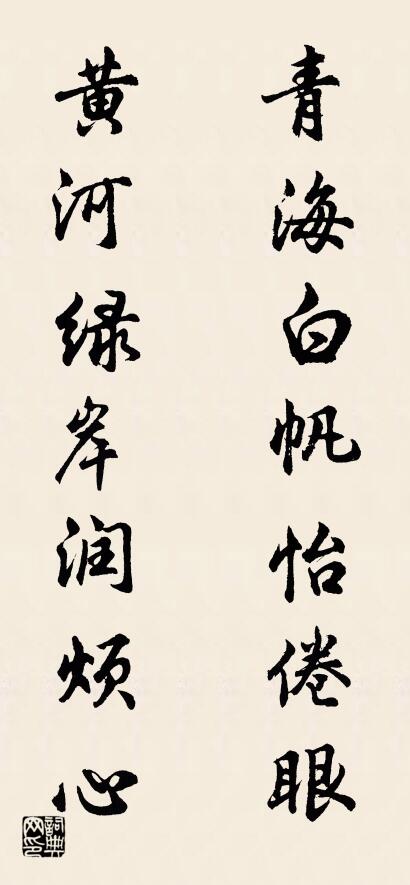 青海白帆怡倦眼
黄河绿岸润烦心
詞典网印